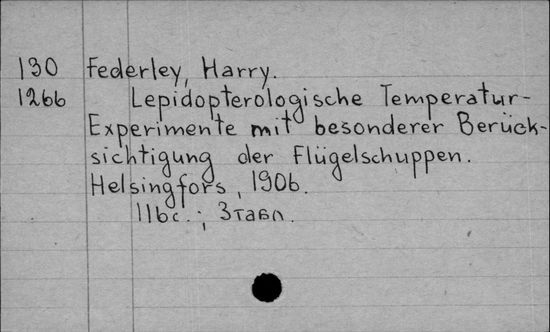 130 Federley, Harry.
1266 Lepidopterologische Temperatur-
Experimente mit besonderer Berück-
sichtigung der Flügelschuppen.
Helsingfors, 1906.
116с.; 3табл.